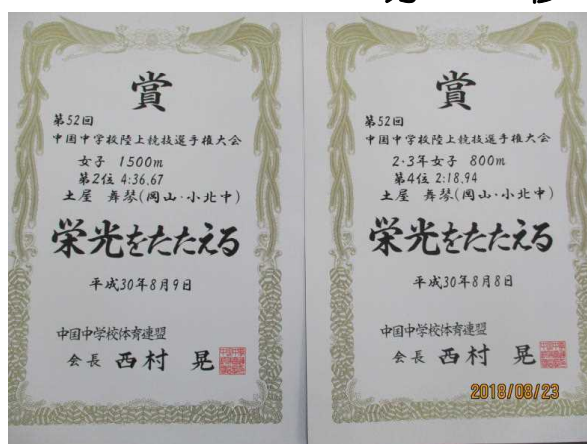 賞
第52回
中国中学校陸上競技選手権大会
女子 1500m
第2位 4:36.67
土屋 舞琴(岡山・小北中)
栄光をたたえる
平成30年8月9日
中国中学校体育連盟
会長 西村 晃
賞
第52回
中国中学校陸上競技選手権大会
2・3年女子 800m
第4位 2:18.94
土屋 舞琴(岡山・小北中)
栄光をたたえる
平成30年8月8日
中国中学校体育連盟
会長 西村 晃
2018/08/23